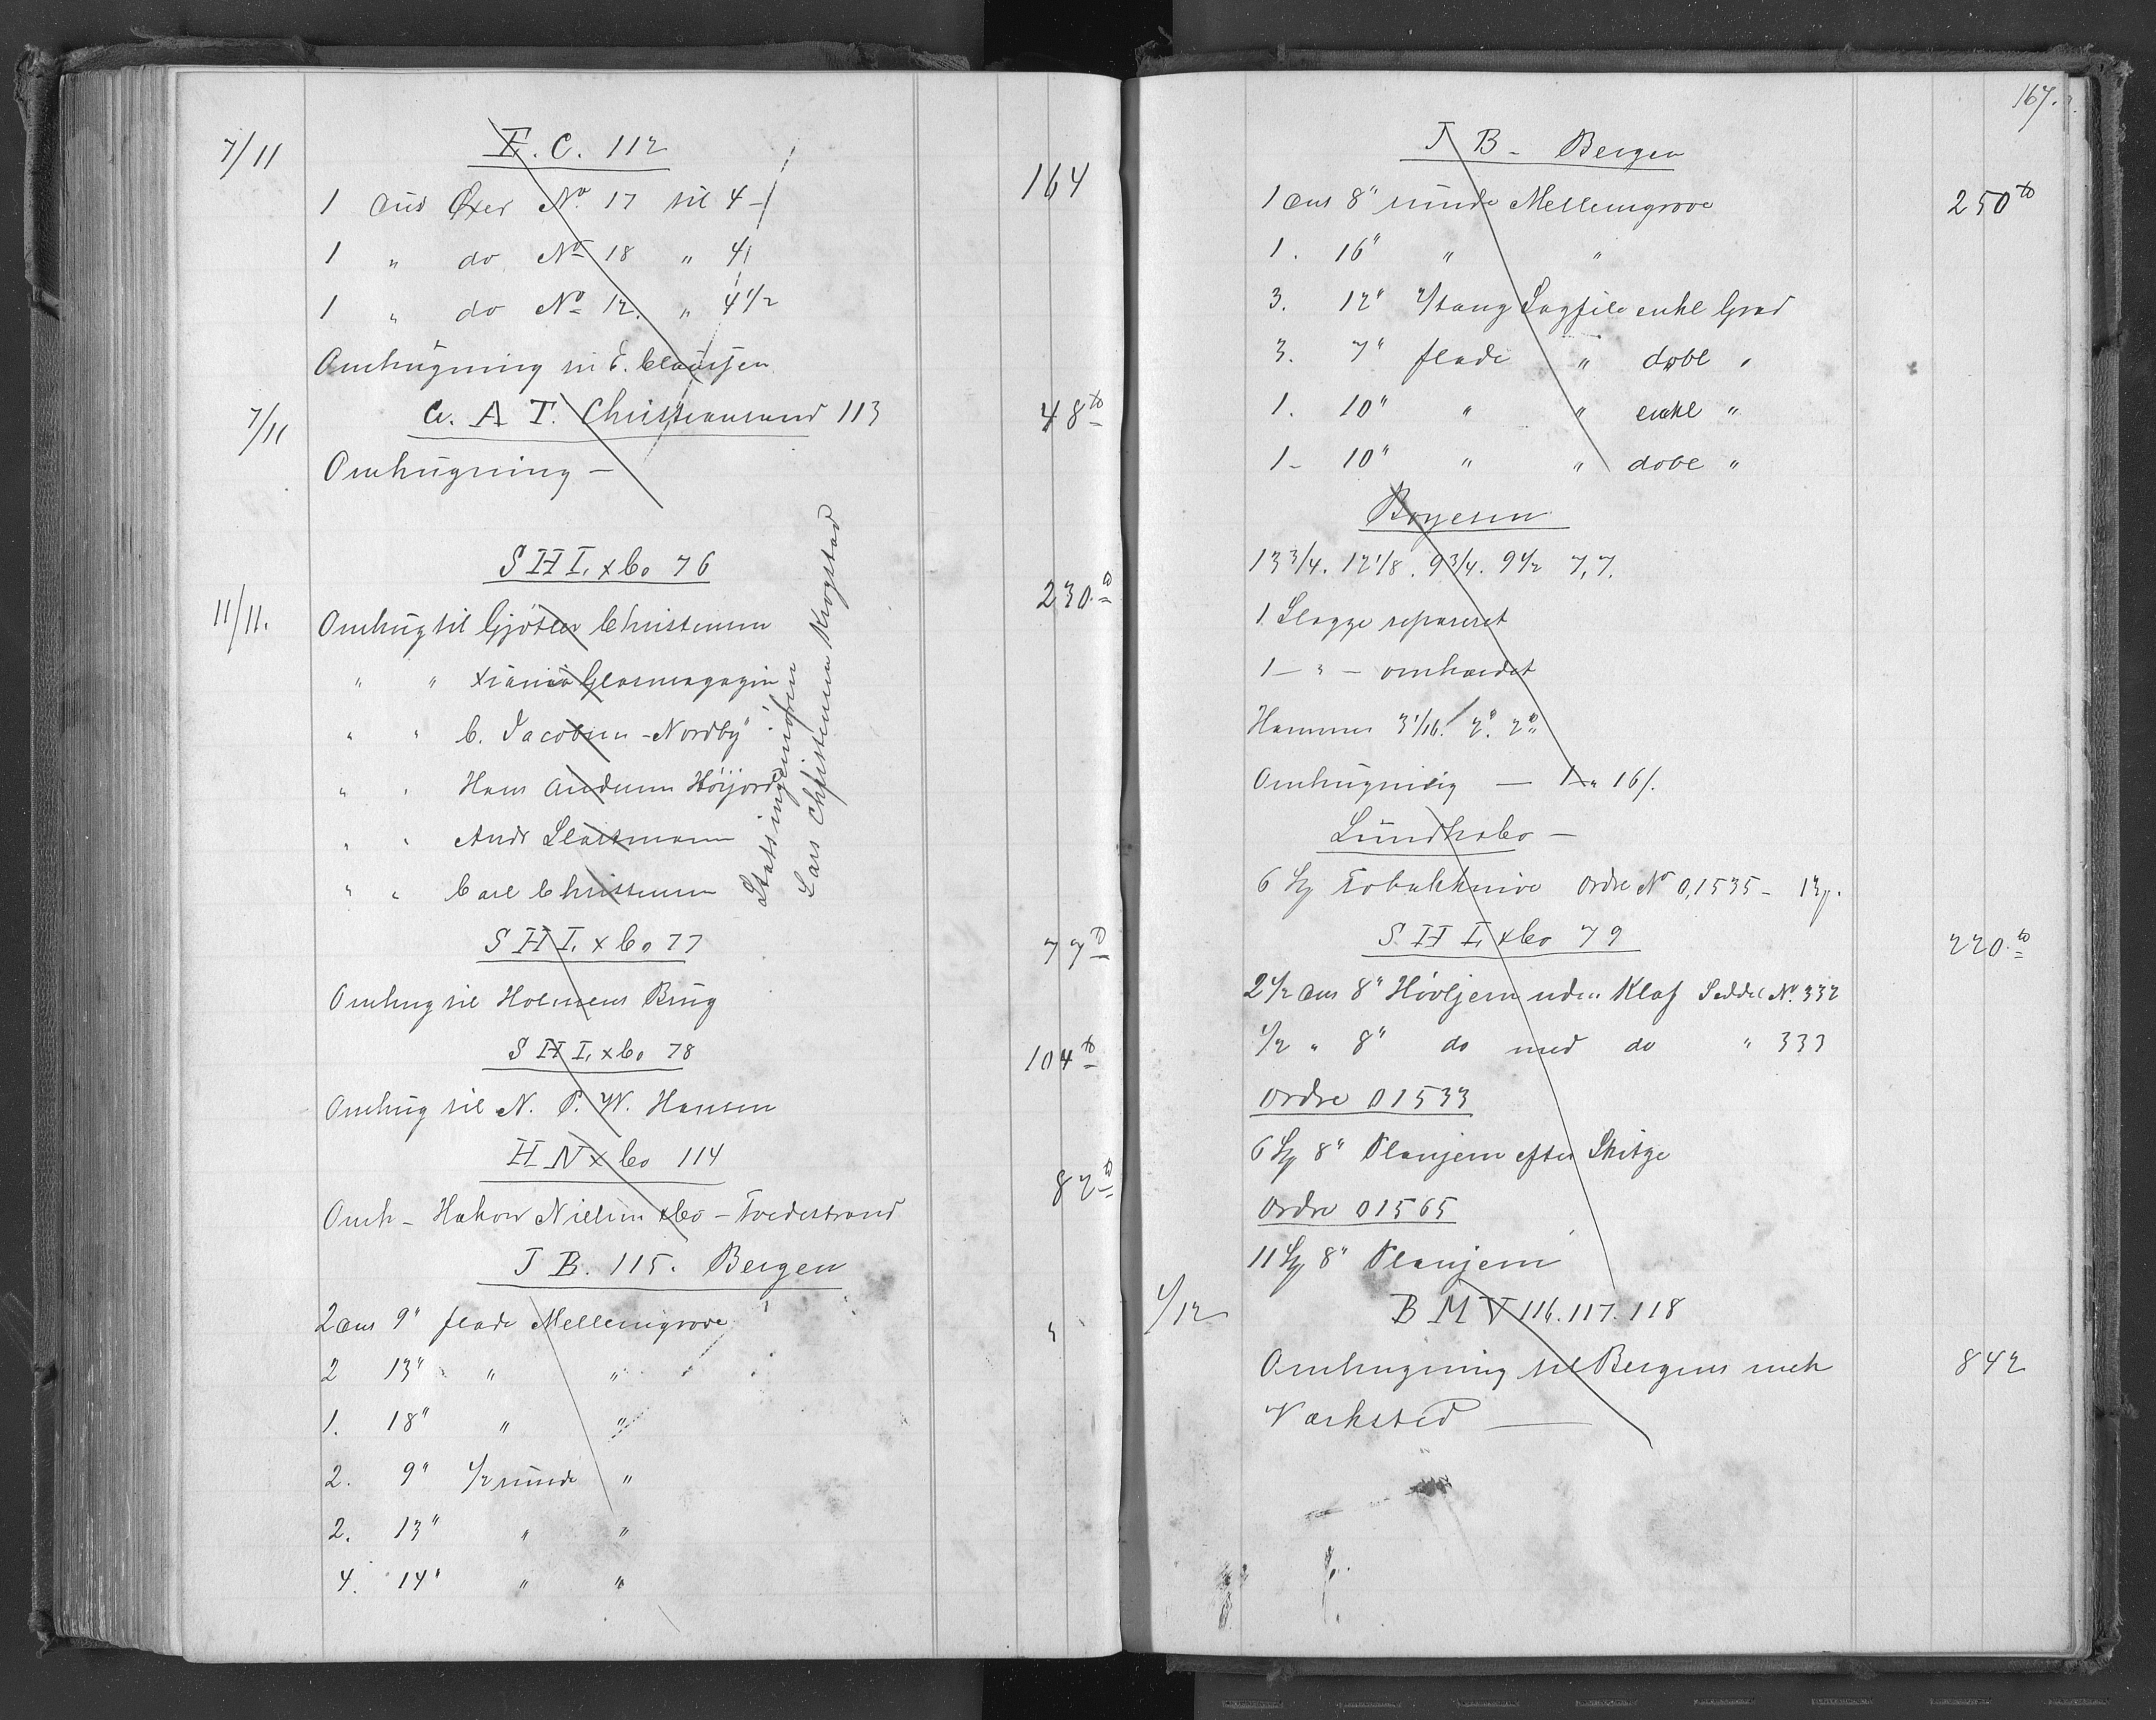 7/11 E. C. 112
1 dus Øxer No. 17 til 4 - 164
1 " do No 18 " 4
1 " do No 12. " 4 1/2
Omhugning til E. Clausen
7/11 C. A T. Christiansand 113 48 to
Omhugning -
S H L x Co 76
11/11. Omhug til Gjötler Christensen 230 to
" " Xiania Glasmagazin
" " C. Jacobsen - Nordby
" " Hans Andersen Höijord
" " Andr Slaatmann
" " Carl Christensen
Statsingeniören
Lars Christensen Krogstad
S H L x Co 77 77 to
Omhug til Holmens Brug
S H L x Co 78 104 to
Omhug til N. P. W. Hansen
H N x Co 114 82 to
Omh - Hakon Nielsen x Co - Tvedestrand
J B. 115. Bergen
2 dus 9" flade Mellemgrove "
2 13" " "
1. 18" " "
2. 9" 1/2 runde "
2. 13" " "
4. 14" " "
167.
J B - Bergen
1 dus 8" runde Mellemgrove 250 to
1. 16" " "
3. 12" Sagfile enkl Grad
3. 7" flade " dobl "
1. 10" " " enkl "
1 - 10" " " dobl "
Boyesen
13 3/4. 12 1/8. 9 3/4. 9 1/2 7, 7.
1 Slægge repareret
1 - " - omhærdet
Hammer 3 1/16. 2". 2"
Omhugning - 1 " 16/.
Lund x Co -
6 St Tobakknive Ordre No 0,1535 -
S. H L x Co 79 220 to
2 1/2 dus 8" Hövljern uden Klaf Seddel No. 332
1/2 " 8" do med do " 333
Ordre 01533
6 St 8" Planjern efter Skitze
Ordre 01565
11 St 8" Planjern
1/12 B M V 116. 117. 118
Omhugning til Bergens mek 842
Værksted -